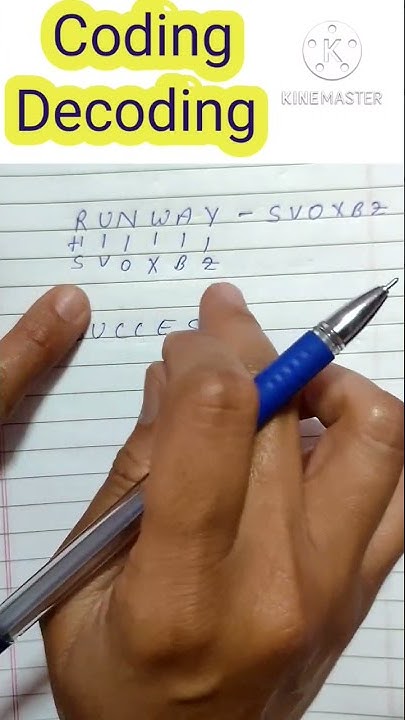 Coding
Decoding
KINEMASTER
RUNWAY - SVOXBZ
SVOXBZ